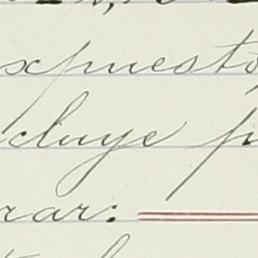 xpuesto,
cluye p
rar: